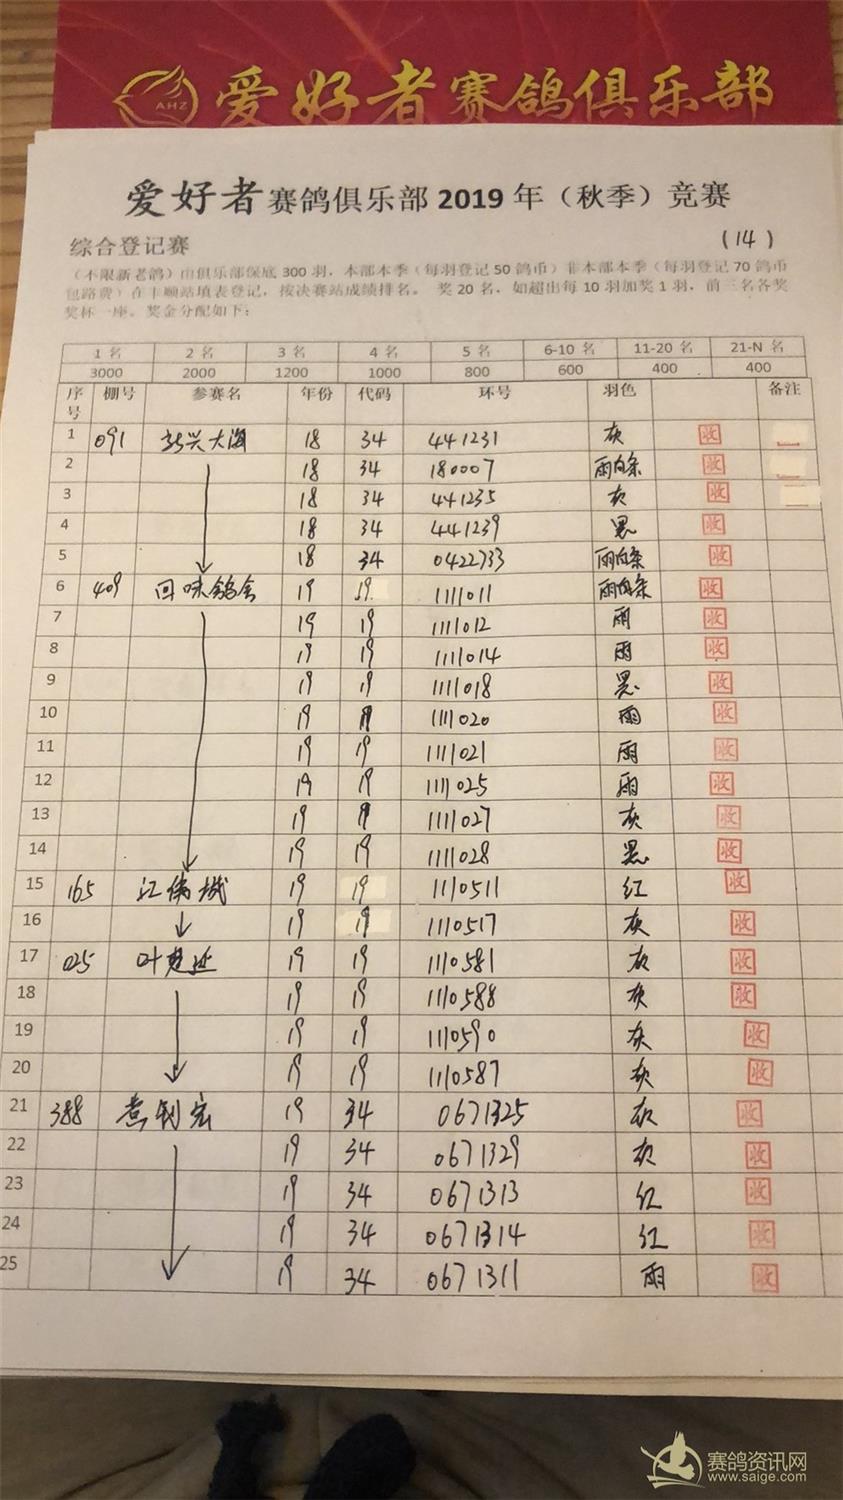 AHZ 爱好者赛鸽俱乐部
爱好者赛鸽俱乐部 2019 年（秋季）竞赛
综合登记赛 (14)
（不限新老鸽）由俱乐部保底 300 羽，本部本季（每羽登记 50 鸽币）非本部本季（每羽登记 70 鸽币
包路费）在丰顺站填表登记，按决赛站成绩排名。 奖 20 名，如超出每 10 羽加奖 1 羽，前三名各奖
奖杯一座。奖金分配如下：
1 名 2 名 3 名 4 名 5 名 6-10 名 11-20 名 21-N 名
3000 2000 1200 1000 800 600 400 400
序号 棚号 参赛名 年份 代码 环号 羽色 备注
1 091 新兴大海 18 34 441231 灰 收
2 18 34 180007 雨白条 收
3 18 34 441235 灰 收
4 18 34 441239 黑 收
5 18 34 0422733 雨白条 收
6 409 回味鸽舍 19 19 1111011 雨白条 收
7 19 19 1111012 雨 收
8 19 19 1111014 雨 收
9 19 19 1111018 黑 收
10 19 19 1111020 雨 收
11 19 19 1111021 雨 收
12 19 19 1111025 雨 收
13 19 19 1111027 灰 收
14 19 19 1111028 黑 收
15 165 江伟城 19 19 1110511 红 收
16 19 19 1110517 灰 收
17 025 叶 19 19 1110581 灰 收
18 19 19 1110588 灰 收
19 19 19 1110590 灰 收
20 19 19 1110587 灰 收
21 388 19 34 0671325 灰 收
22 19 34 0671329 灰 收
23 19 34 0671313 红 收
24 19 34 0671314 红 收
25 19 34 0671311 雨 收
赛鸽资讯网
www.saige.com